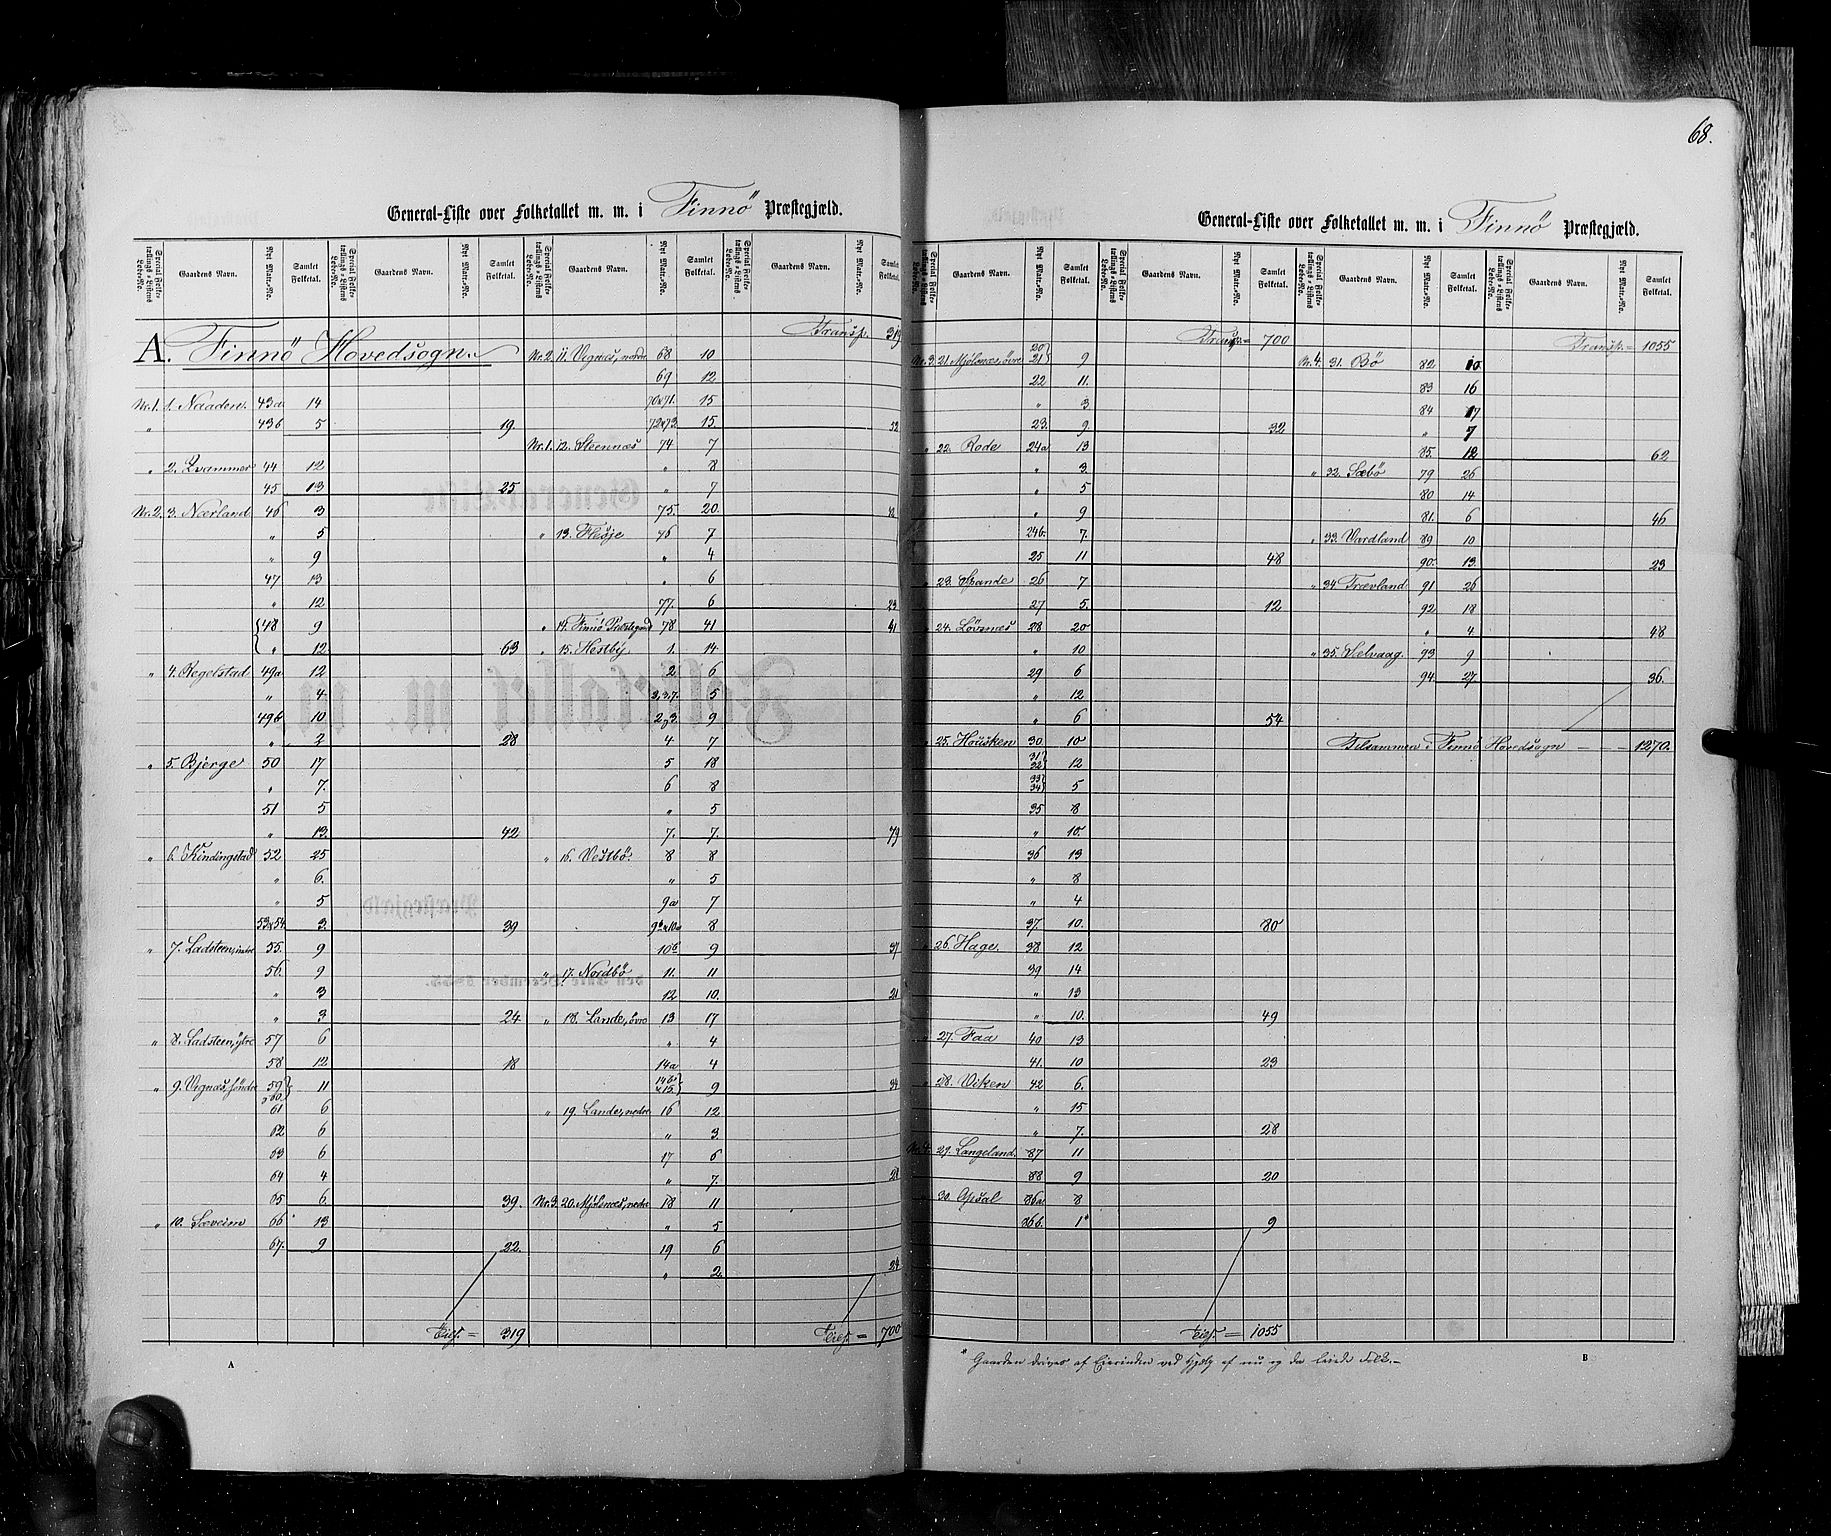 68.
General-Liste over Folketallet m. m. i Finnö Præstegjæld.
Special Folketællings-Listens Løbe-No. Gaardens Navn. Nyt Matr.-No. Samlet Folketal. Special Folketællings-Listens Løbe-No. Gaardens Navn. Nyt Matr.-No. Samlet Folketal. Special Folketællings-Listens Løbe-No. Gaardens Navn. Nyt Matr.-No. Samlet Folketal. Special Folketællings-Listens Løbe-No. Gaardens Navn. Nyt Matr.-No. Samlet Folketal.
A. Finnö Hovedsogn.
Nr. 1. 1. Naaden. 43a 14
" 43b 5 19
" 2. Kvammer 44 12
45 13 25
Nr. 2. 3. Nærland 46 3
" 5
" 9
47 13
" 12
48 9
" 12 63
" 4. Regelstad 49a 12
" 4.
49b 10
" 2 28
" 5. Bjerge 50 17
" 7.
51 5
" 13. 42
" 6. Kindingstad 52 25
" 6.
" 5
53 & 54 3. 39
" 7. Ladsteen, indre 55. 9
56. 9
" 3
" 3 24
" 8. Ladsteen, ytre 57 6
58 12 18
" 9. Vignæs, söndre 59 & 60. 11
61 6
62 6
63 6
64 4
65 6 39.
" 10. Sæveim 66 13
67. 9 22.
Eies. = 319
Transp. 319
Nr. 2. 11. Vignæs, nordre 68 10
69 12
70 & 71. 15
72 & 73. 15. 52
Nr. 1. 12. Steennæs 74 7
" 8
" 7
75. 20. 42
" 13. Flesje 76 7
" 4
" 6
77. 6 23
" 14. Finnö Præstegaard 78 41 41
" 15. Hestby 1. 14
2 6
2, 3, 7. 5
2 & 3. 9
4 7
5 18
6 8
" 5
7. 7. 79
" 16. Vestbö. 8 8
" 5
9a 7
9b & 10a 8
10b 9 37
" 17. Nordbö 11. 11
12 10. 21
" 18. Lande, övre 13 17
" 4
14a 4
14b & 15. 9 34
" 19. Lande, nedre 16 12
" 3.
17 6
" 7. 28
Nr. 3. 20. Mjölsnæs, nedre 18 11
" 5
19 6
" 2. 24
= 700
A
General-Liste over Folketallet m. m. i Finnö Præstegjæld.
Special Folketællings-Listens Løbe-No. Gaardens Navn. Nyt Matr.-No. Samlet Folketal. Special Folketællings-Listens Løbe-No. Gaardens Navn. Nyt Matr.-No. Samlet Folketal. Special Folketællings-Listens Løbe-No. Gaardens Navn. Nyt Matr.-No. Samlet Folketal. Special Folketællings-Listens Løbe-No. Gaardens Navn. Nyt Matr.-No. Samlet Folketal.
Transp. = 700
Nr. 3. 21. Mjölsnæs, övre 20 21 9
22 11.
" 3
23. 9. 32
" 22. Rode 24a 13
" 3.
" 5
" 9
24b. 7.
25 11 48
" 23. Spande 26 7
27 5. 12
" 24. Lövsnes 28 20
" 10
29 6
" 12
" 6 54
" 25. Housken 30. 10
31 32 12
33 34 5
35 8
" 10.
36 13
" 8
" 4
37. 10. 80
" 26. Hage. 38 12
39 14
" 13
" 10. 49
" 27. Faa 40 13
41. 10 23
" 28. Viken 42 6.
" 15
" 7. 28
Nr. 4. 29. Langeland. 87 11
88 9 20
" 30. Opsal 86a 8
86b. 1* 9
= 1055
Transp. = 1055
Nr. 4. 31. Bö 82 10
83 16
84 17
" 7
85. 12 62
" 32. Sæbö 79 26
80 14
81. 6 46
" 33. Vardland 89 10
90. 13. 23
" 34. Trævland 91 26
92 18
" 4 48
" 35. Sælvaag 93 9
94. 27. 36.
Tilsammen i Finnö Hovedsogn - - - 1270.
* Gaarden drives af Eierinden ved Hjælp af nu og da leiede Folk. -
B